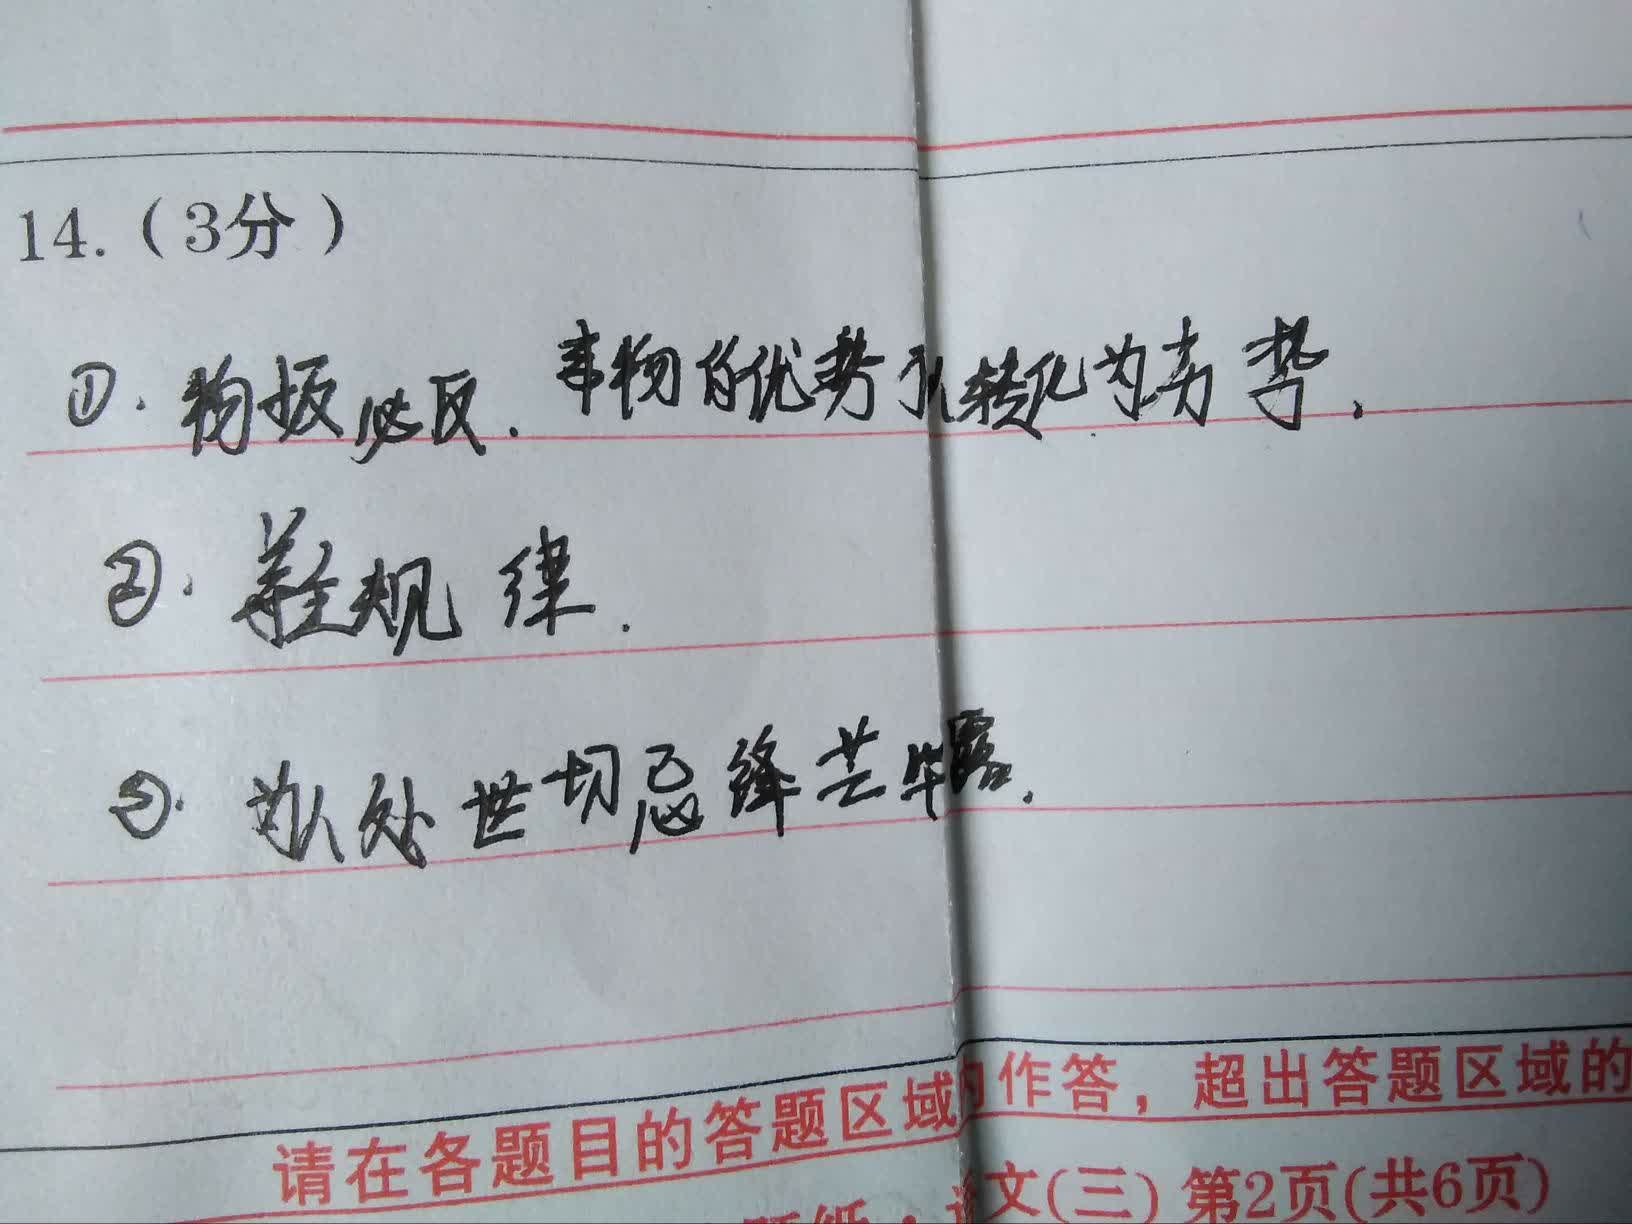 14.（3分）
①.物极必反.事物的优势可转化为劣势.
②.规律.
③.为人处世切忌锋芒毕露.
请在各题目的答题区域的作答，超出答题区域的
文(三) 第2页(共6页)